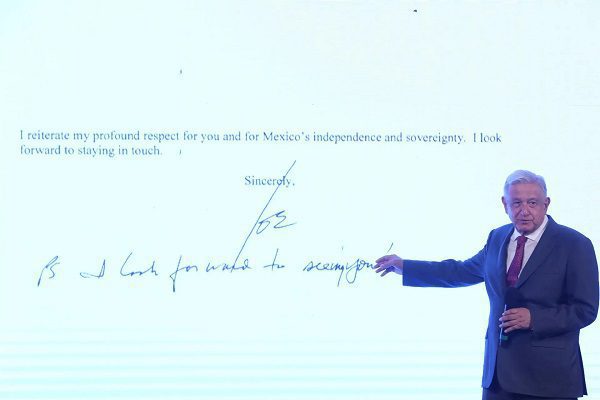 I reiterate my profound respect for you and for Mexico's independence and sovereignty. I look
forward to staying in touch.
Sincerely,
Joe
PS I look forward to seeing you!